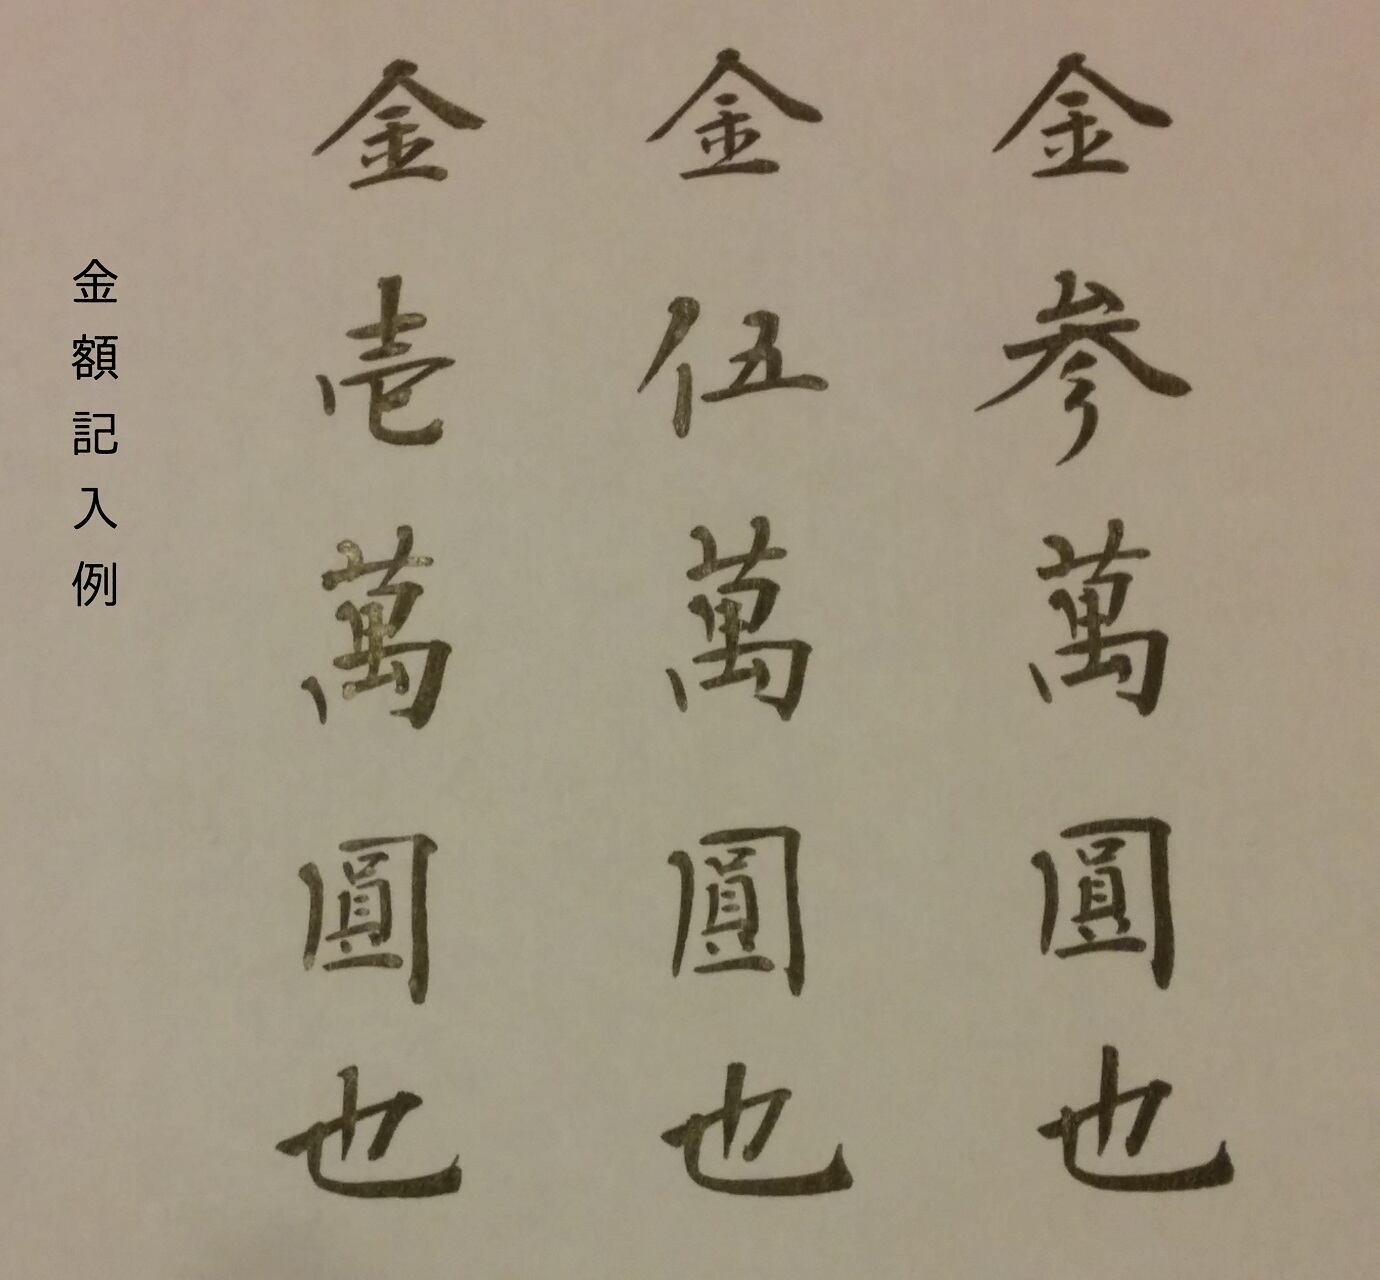 金参萬圓也
金伍萬圓也
金壱萬圓也
金額記入例